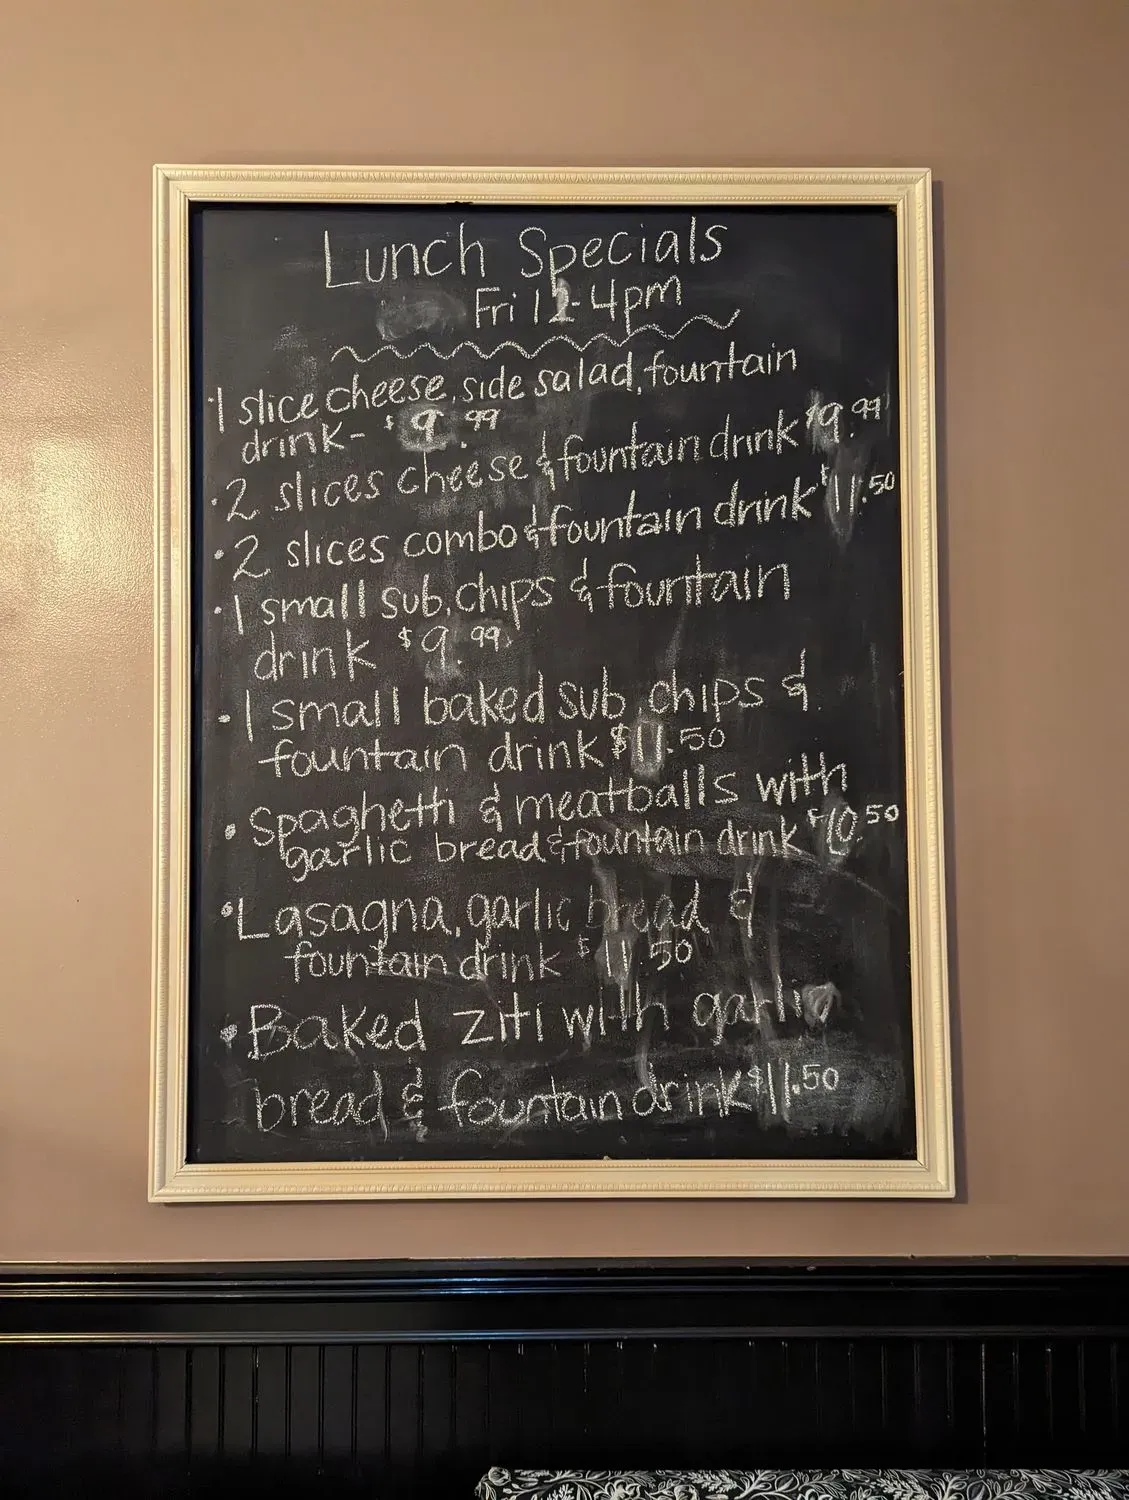 Lunch Specials
Fri 12-4pm
·1 slice cheese, side salad, fountain
drink- $9.99
·2 slices cheese & fountain drink $9.99
·2 slices combo & fountain drink $11.50
·1 small sub, chips & fountain
drink $9.99
·1 small baked sub, chips &
fountain drink $11.50
·Spaghetti & meatballs with
garlic bread & fountain drink $10.50
·Lasagna, garlic bread &
fountain drink $11.50
·Baked ziti with garlic
bread & fountain drink $11.50